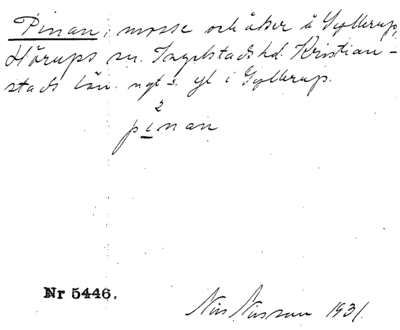 Pinan, mosse och åker å Gyllerup,
Hörups sn. Ingelstads hd. Kristian-
stads län. ngt s. gl i Gyllerup.
2
pinan
Nr 5446.
Nils Nilsson 1931.